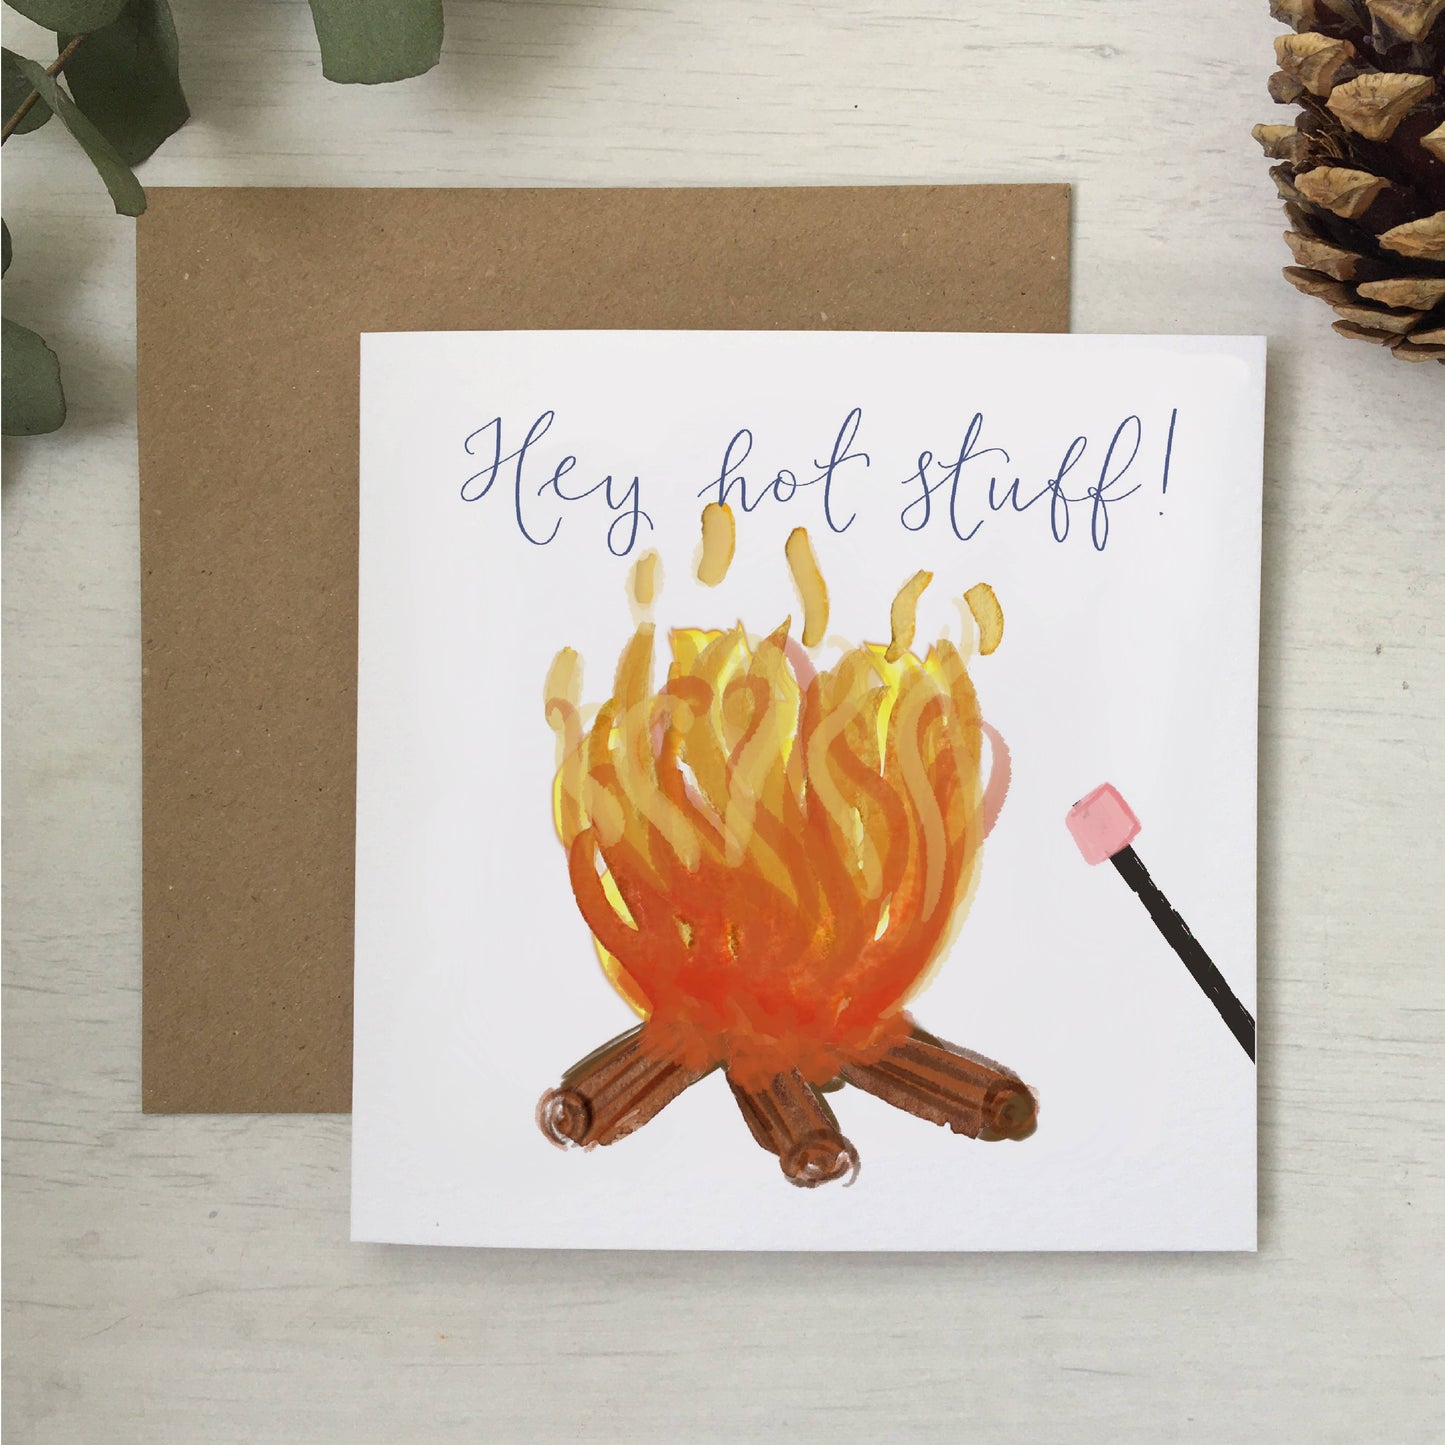 Hey hot stuff!